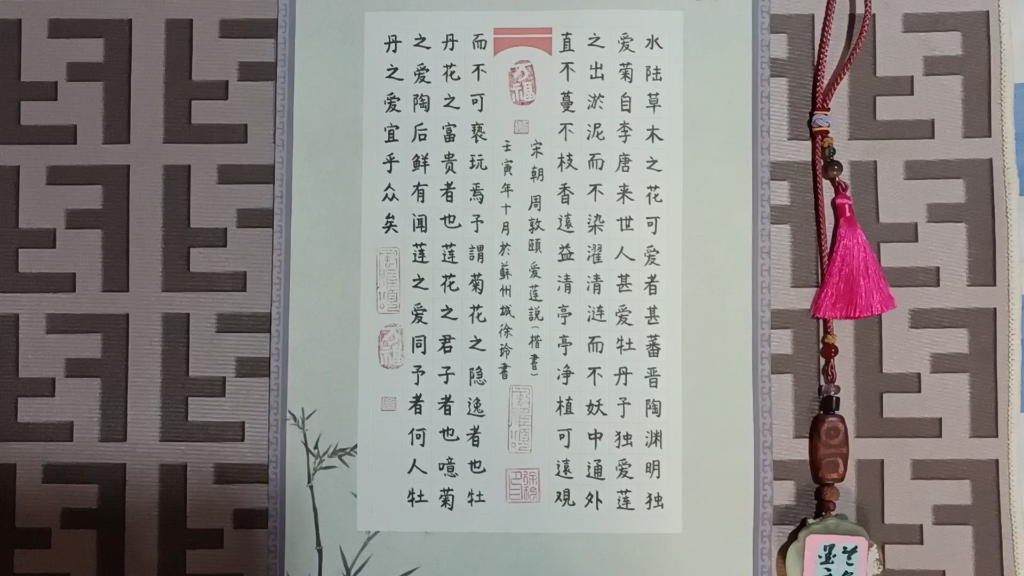 水陆草木之花可爱者甚蕃晋陶渊明独
爱菊自李唐来世人甚爱牡丹予独爱莲
之出淤泥而不染濯清涟而不妖中通外
直不蔓不枝香遠益清亭亭净植可遠观
宋朝周敦颐爱莲説(楷書)
壬寅年十月於蘇州城徐玲書
而不可亵玩焉予謂菊花之隐逸者也牡
丹花之富贵者也莲花之君子者也噫菊
之爱陶后鲜有闻莲之爱同予者何人牡
丹之爱宜乎众矣